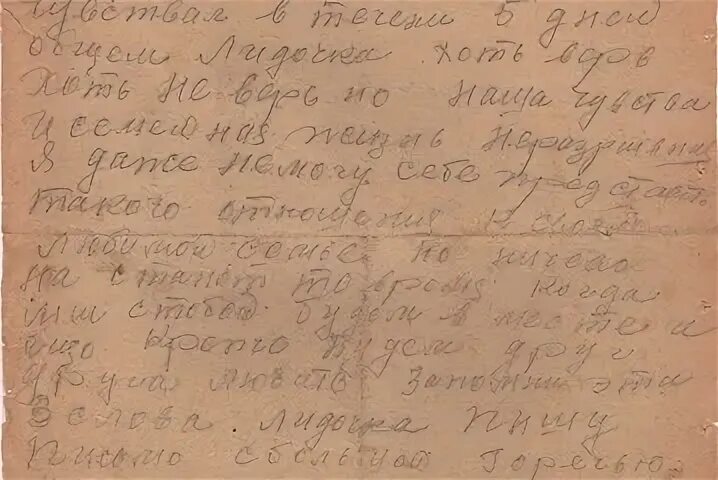 чувствал в течени 5 дней
общем Лидочка хоть верь
хоть не верь но наша чувства
и семейная жизнь неразривние
Я даже немогу себе представат.
такого отношения к своей
любимой семье но ничево
настанет то время когда
мы стобой будем в месте и
ещо крепче будем друг
друга любить Запомни эти
3 слова. Лидочка Пишу
Письмо сбольшой Горечью